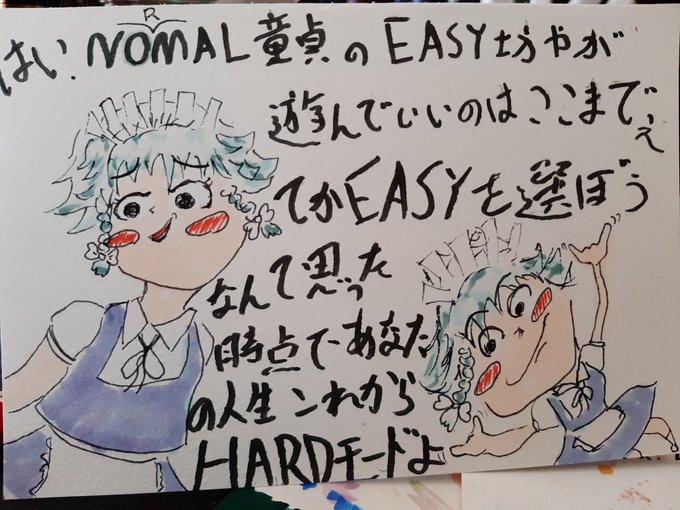 はい、NORMAL童貞のEASY坊やが
遊んでいいのはここまでぇ
てかEASYを選ぼう
なんて思った
時点であなた
の人生これから
HARDモードよ